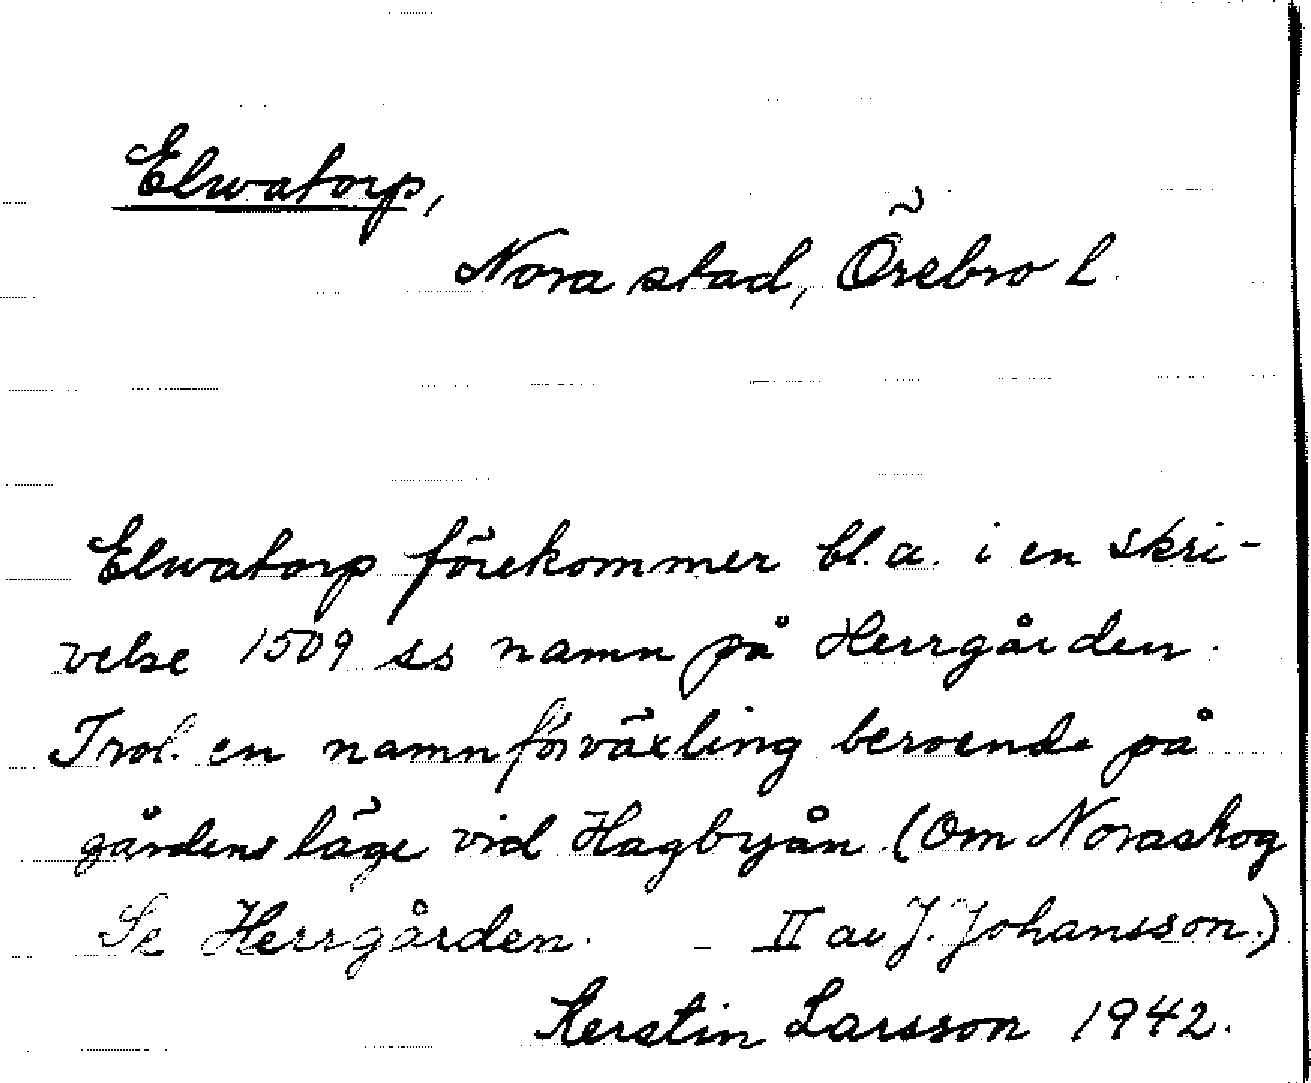 Elwatorp,
Nora stad, Örebro l.
Elwatorp förekommer bl.a. i en skri-
velse 1509 ss namn på Herrgården.
Trol. en namnförväxling beroende på
gårdens läge vid Hagbyån (Om Noraskog
Se Herrgården. - II av J. Johansson.)
Kerstin Larsson 1942.